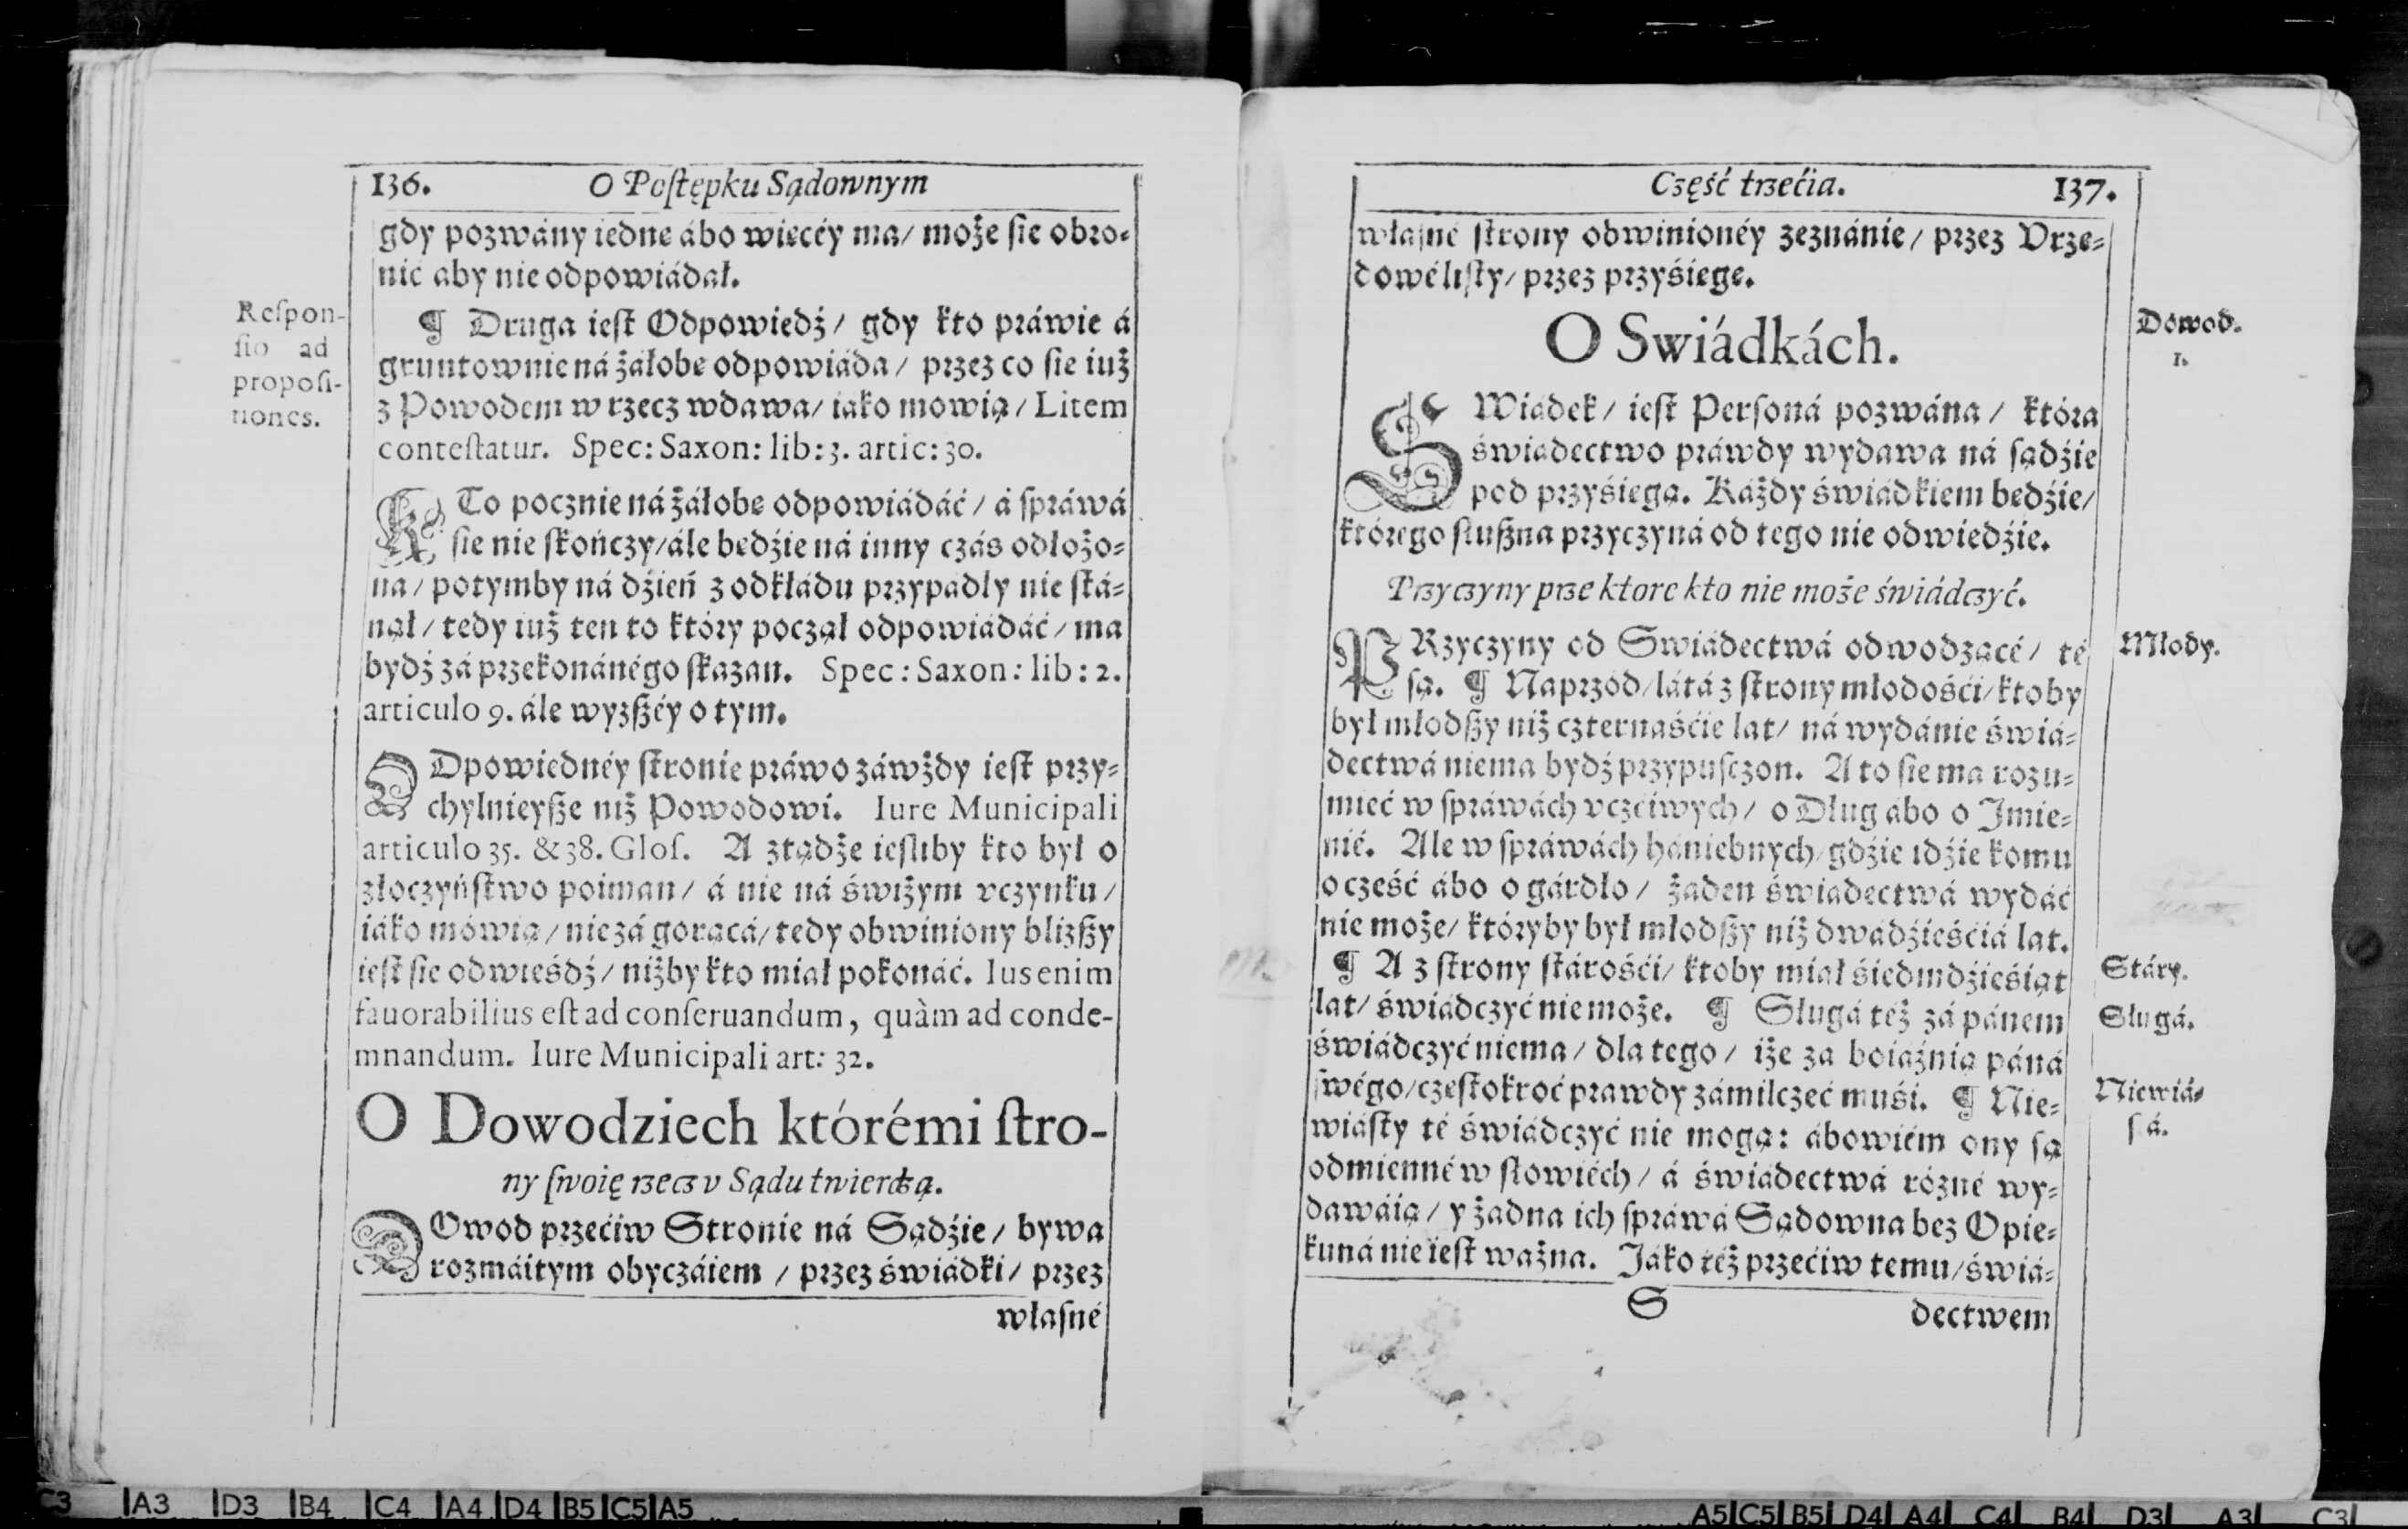 136. O Poſtępku Sądownym
gdy pozwány iedne ábo wiecéy ma/ może ſie obro-
nić aby nie odpowiádał.
Reſpon-
ſio ad
propoſi-
tiones.
¶ Druga ieſt Odpowiedź/ gdy kto práwie á
gruntownie ná żáłobe odpowiáda/ przez co ſie iuż
z Powodem w rzecz wdawa/ iako mowią/ Litem
conteſtatur. Spec: Saxon: lib: 3. artic: 30.
KTo pocznie ná żáłobe odpowiádáć/ á ſpráwá
ſie nie ſkończy/ ále bedźie ná inny czás odłożo-
na/ potymby ná dźień z odkłádu przypadły nie ſtá-
nął/ tedy iuż ten to który począł odpowiádáć/ ma
bydź zá przekonánégo ſkazan. Spec: Saxon: lib: 2.
articulo 9. ále wyzſzéy o tym.
ODpowiednéy ſtronie práwo záwżdy ieſt przy-
chylnieyſze niż Powodowi. Iure Municipali
articulo 35. & 38. Gloſ. A ztądże ieſliby kto był o
złoczyńſtwo poiman/ á nie ná świżym vczynku/
iáko mówią/ nie zá gorącá/ tedy obwiniony blizſzy
ieſt ſie odwieśdź/ niżby kto miał pokonáć. Ius enim
fauorabilius eſt ad conſeruandum, quàm ad conde-
mnandum. Iure Municipali art: 32.
O Dowodziech którémi ſtro-
ny ſwoię rzecz v Sądu twierdzą.
DOwod przećiw Stronie ná Sądźie/ bywa
rozmáitym obyczáiem / przez świádki/ przez
własné
Część trzećia. 137.
własné ſtrony obwinionéy zeznánie/ przez Vrze-
dowé liſty/ przez przyśiege.
O Swiádkách.
Dowod.
1.
SWiadek/ ieſt Perſoná pozwána/ która
świadectwo práwdy wydawa ná ſądźie
pod przyśiegą. Káżdy świádkiem bedźie/
którego ſłuſzna przyczyná od tego nie odwiedźie.
Przyczyny prze ktore kto nie może świádczyć.
PRzyczyny od Swiádectwá odwodzącé/ té
Młody.
ſą. ¶ Naprzód/ látá z ſtrony młodośći/ ktoby
był młodſzy niż czternaśćie lat/ ná wydánie świá-
dectwá niema bydź przypuſczon. A to ſie ma rozu-
mieć w ſpráwách vczćiwych/ o Dług ábo o Imie-
nié. Ale w ſpráwách hániebnych/ gdźie idźie komu
o cześć ábo o gárdło/ żaden świadectwá wydáć
nie może/ któryby był młodſzy niż dwádźieśćiá lat.
¶ A z ſtrony ſtárośći/ ktoby miał śiedmdźieśiąt
Stáry.
lat/ świádczyć nie może. ¶ Sługá téż zá pánem
Sługá.
świádczyć niema/ dla tego/ iże za boiáźnią páná
ſwégo/ częſtokroć prawdy zámilczeć muśi. ¶ Nie-
Niewiá-
wiáſty té świádczyć nie mogą: ábowiém ony ſą
odmienné w ſłowiéch/ á świádectwá rózné wy-
dawáią/ y żadna ich ſpráwá Sądowna bez Opie-
kuná nie ieſt ważna. Jáko téż przećiw temu/ świá-
S dectwem
C3 A3 D3 B4 C4 A4 D4 B5 C5 A5
A5 C5 B5 D4 A4 C4 B4 D3 A3 C3